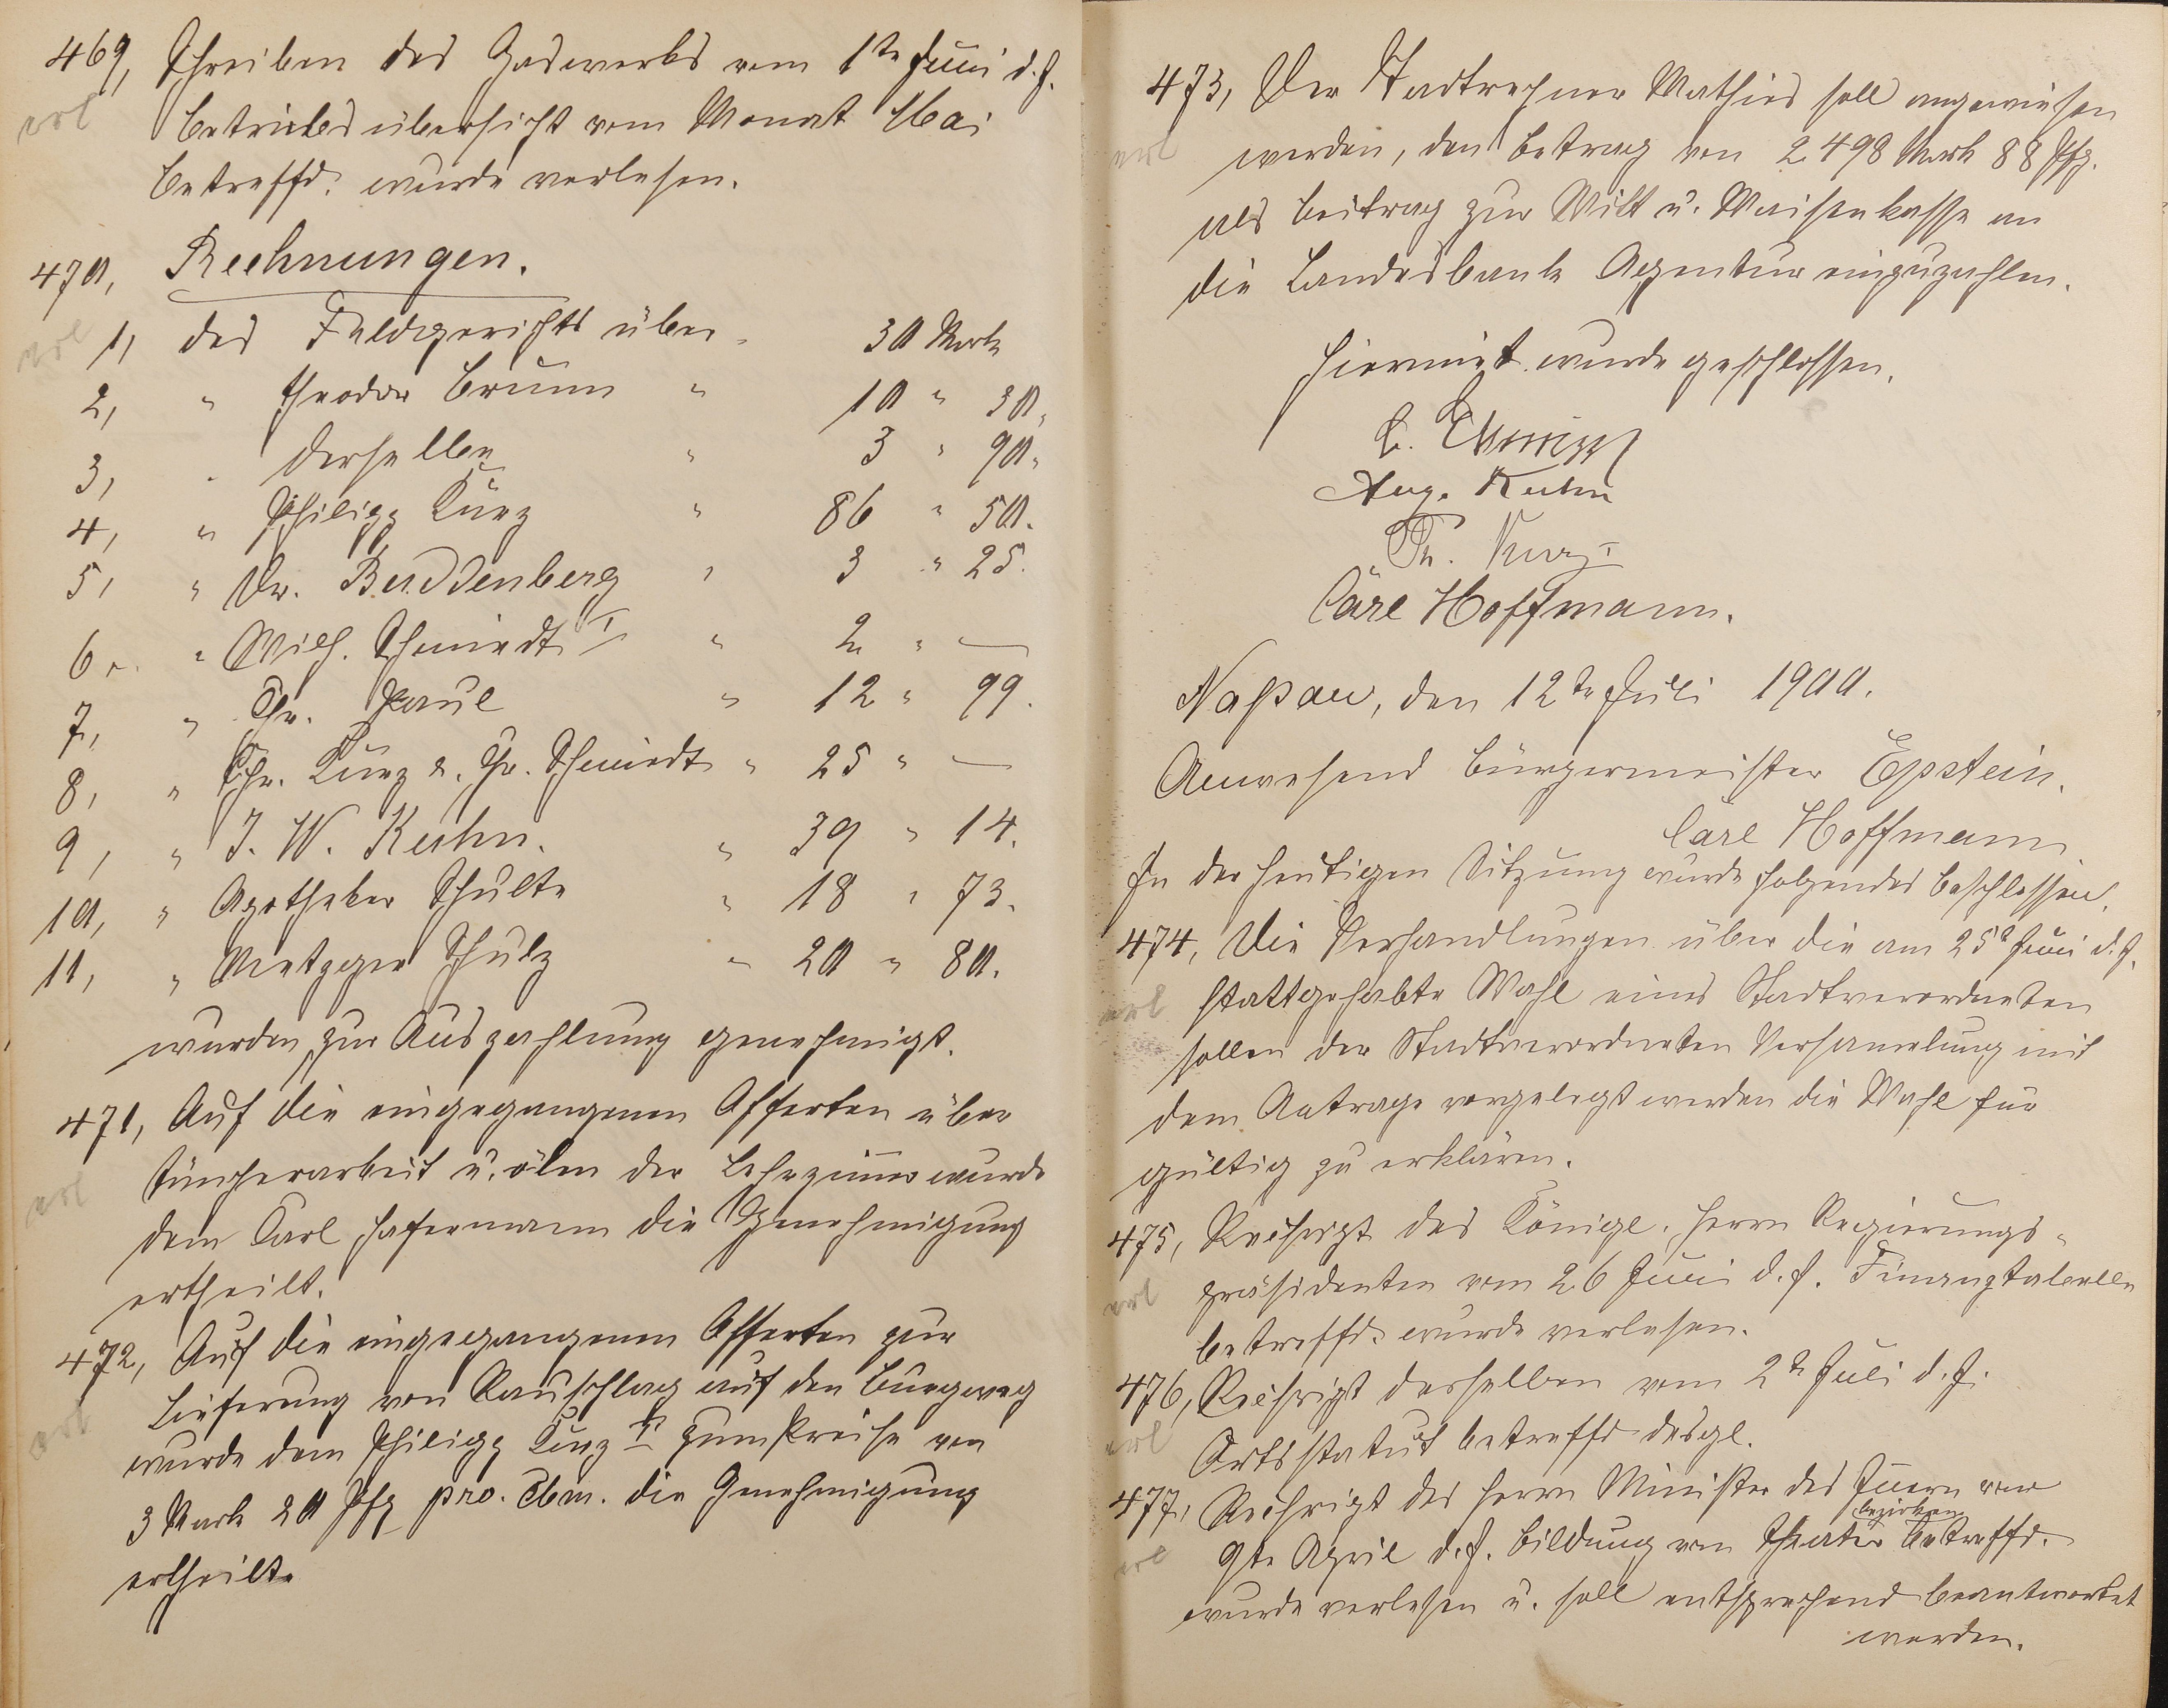 469, Schreiben des Gaswerks vom 1te Juni d. J.
erl
Betriebsübersicht vom Monat Mai
betreffd. wurde verlesen.
470, Rechnungen.
erl
1, des Feldgerichts über 30 Mark
2, " Theodor Brunn " 10 " 30.
3, " derselbe " 3 " 90.
4, " Philipp Kurz " 86 " 50.
5, " Dr. Buddenberg " 3 " 25.
6, " Wilh. Schmidt I " 2 " —
7, " Chr. Paul " 12 " 99.
8, " Chr. Kurz u. Chr. Schmidt " 25 " —
9, " J. W. Kuhn. " 39 " 14.
10, " Apotheker Schulte " 18 " 73.
11, " Metzger Schulz " 20 " 80.
wurden zur Auszahlung genehmigt.
471, Auf die eingegangenen Offerten über
Tüncherarbeit u. ölen der Lehrzimer wurde
erl
dem Carl Hafermann die Genehmigung
ertheilt.
472, Auf die eingegangenen Offerten zur
Lieferung von Rauschlag auf den Burgweg
erl
wurde dem Philipp Kurz II zum Preise von
3 Mark 20 Pfg pro. Cbm. die Genehmigung
ertheilt.
473, Der Stadtrechner Mathies soll angewiesen
erl
werden, den Betrag von 2498 Mark 88 Pfg.
als Beitrag zur Witt u. Waisenkasse an
die Landesbank Agentur einzuzahlen.
Hiermit wurde geschlossen.
Aug. Kuhn
Ph. Kurz I
Carl Hoffmann.
Naßau, den 12te Juli 1900.
Anwesend Bürgermeister Epstein.
Carl Hoffmann
In der heutigen Sitzung wurde folgendes beschlossen.
474, Die Verhandlungen über die am 25t Juni d. J.
erl
stattgehabte Wahl eines Stadtverordneten
sollen der Stadtverordneten Versamelung mit
dem Antrage vorgelegt werden die Wahl für
gültig zu erklären.
475, Rescript des Königl. Herrn Regierungs-
erl
präsidenten vom 26 Juni d. J. Finanztabelle
betreffd. wurde verlesen.
476, Rescript desselben vom 2te Juli d. J.
erl
Ortsstatut betreffd desgl.
477, Rescript des Herrn Minister des Innern vom
bezirken
erl
9te April d. J. Bildung von Theater betreffd.
wurde verlesen u. soll entsprechend beantwortet
werden.